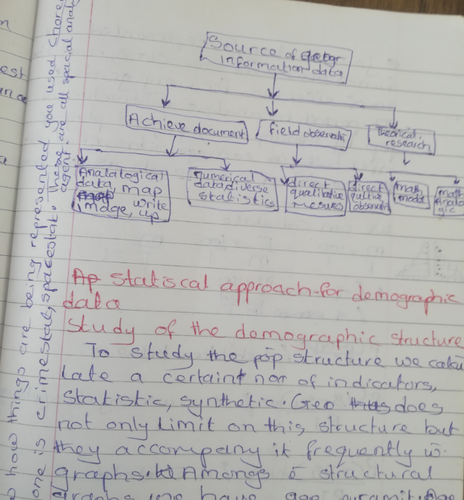 Source of
information data
Achieve document
field observati
Theorical
research
Analalogical
data, map
write
image, up
numerical
data diverse
statistics
direct
qualitative
mesures
direct
observati
math
model
math
analo
gic
Ap statiscal approach for demographic
data
Study of the demographic structure
To study the pop structure we calcu
late a certaint nor of indicators,
statistic, synthetic. Geo does
not only limit on this structure but
they accompany it frequently w
graphs. Amongs structural
graphs we have age
how things are being represented you used chore
one is crimestat, spacestat. these are all spacial analy
agent